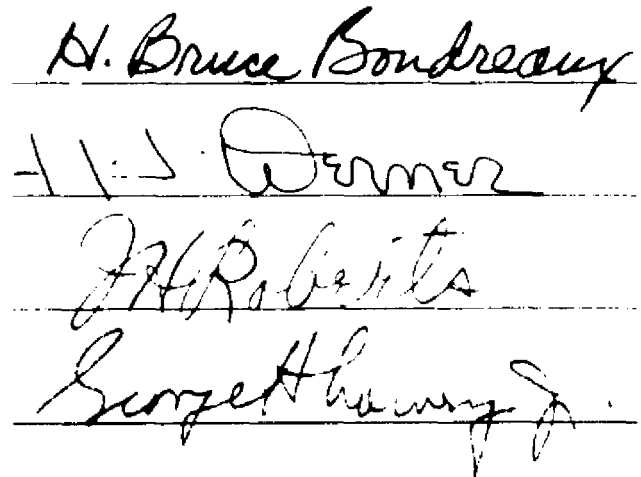 H. Bruce Boudreaux
H. J. Werner
J H Roberts
George H Jr.